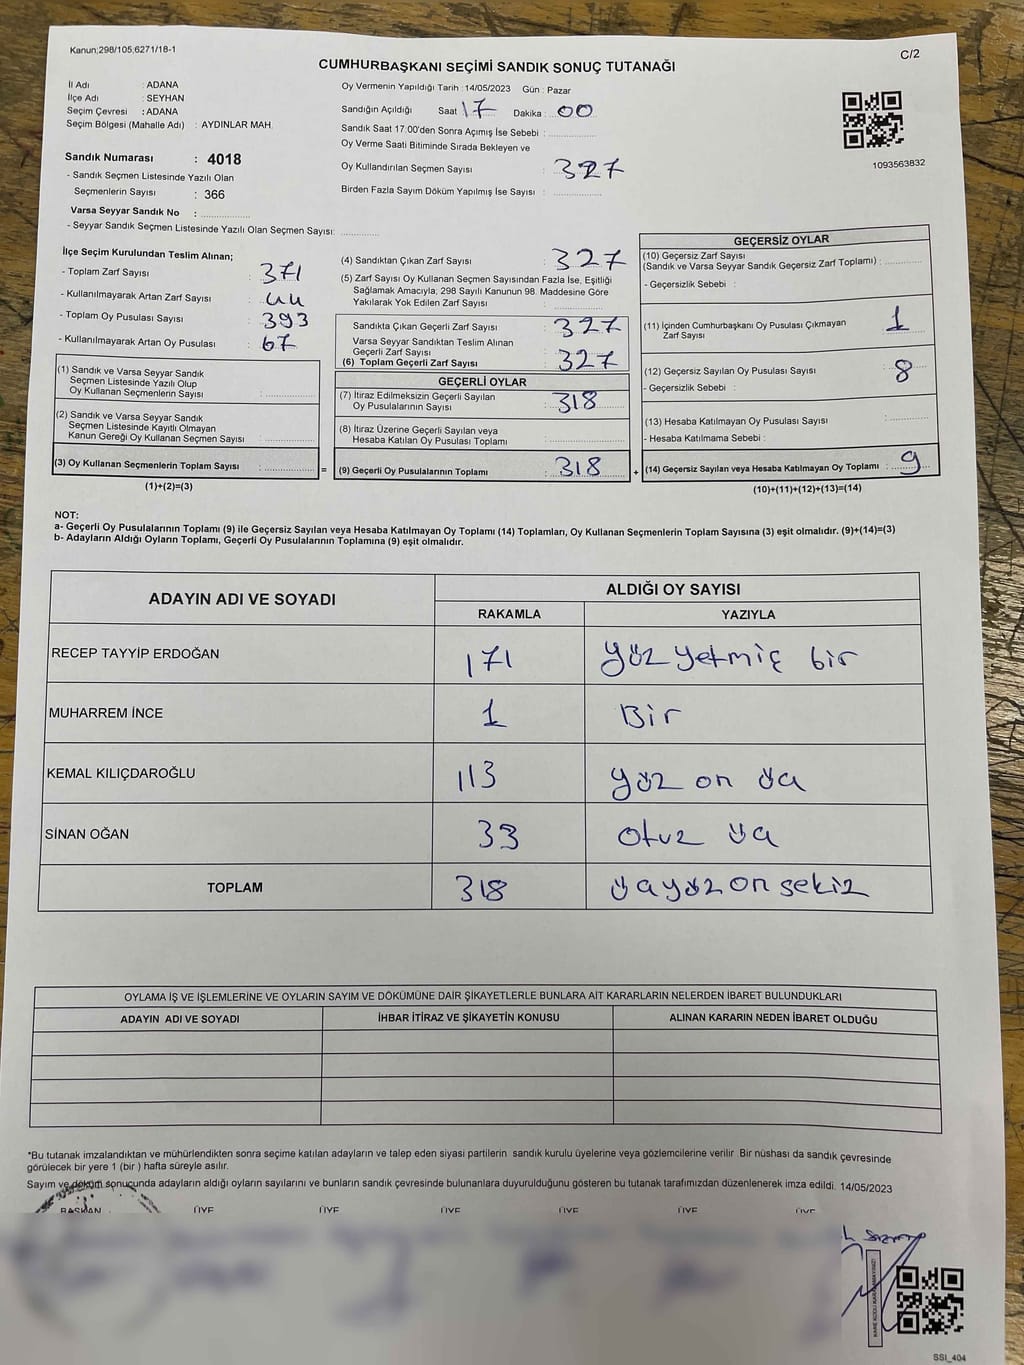 Kanun;298/105;6271/18-1
C/2
CUMHURBAŞKANI SEÇİMİ SANDIK SONUÇ TUTANAĞI
İl Adı : ADANA
İlçe Adı : SEYHAN
Seçim Çevresi : ADANA
Seçim Bölgesi (Mahalle Adı) : AYDINLAR MAH.
Sandık Numarası : 4018
- Sandık Seçmen Listesinde Yazılı Olan
Seçmenlerin Sayısı : 366
Varsa Seyyar Sandık No :
- Seyyar Sandık Seçmen Listesinde Yazılı Olan Seçmen Sayısı:
Oy Vermenin Yapıldığı Tarih : 14/05/2023 Gün : Pazar
Sandığın Açıldığı Saat 17 Dakika : 00
Sandık Saat 17:00'den Sonra Açımış İse Sebebi :
Oy Verme Saati Bitiminde Sırada Bekleyen ve
Oy Kullandırılan Seçmen Sayısı : 327
Birden Fazla Sayım Döküm Yapılmış İse Sayısı :
1093563832
İlçe Seçim Kurulundan Teslim Alınan;
- Toplam Zarf Sayısı : 371
- Kullanılmayarak Artan Zarf Sayısı : 44
- Toplam Oy Pusulası Sayısı : 393
- Kullanılmayarak Artan Oy Pusulası : 67
(1) Sandık ve Varsa Seyyar Sandık
Seçmen Listesinde Yazılı Olup
Oy Kullanan Seçmenlerin Sayısı :
(2) Sandık ve Varsa Seyyar Sandık
Seçmen Listesinde Kayıtlı Olmayan
Kanun Gereği Oy Kullanan Seçmen Sayısı :
(3) Oy Kullanan Seçmenlerin Toplam Sayısı :
(1)+(2)=(3)
(4) Sandıktan Çıkan Zarf Sayısı : 327
(5) Zarf Sayısı Oy Kullanan Seçmen Sayısından Fazla İse, Eşitliği
Sağlamak Amacıyla; 298 Sayılı Kanunun 98. Maddesine Göre
Yakılarak Yok Edilen Zarf Sayısı :
Sandıkta Çıkan Geçerli Zarf Sayısı : 327
Varsa Seyyar Sandıktan Teslim Alınan
Geçerli Zarf Sayısı
(6) Toplam Geçerli Zarf Sayısı : 327
GEÇERLİ OYLAR
(7) İtiraz Edilmeksizin Geçerli Sayılan
Oy Pusulalarının Sayısı : 318
(8) İtiraz Üzerine Geçerli Sayılan veya
Hesaba Katılan Oy Pusulası Toplamı :
= (9) Geçerli Oy Pusulalarının Toplamı : 318
GEÇERSİZ OYLAR
(10) Geçersiz Zarf Sayısı
(Sandık ve Varsa Seyyar Sandık Geçersiz Zarf Toplamı) :
- Geçersizlik Sebebi :
(11) İçinden Cumhurbaşkanı Oy Pusulası Çıkmayan
Zarf Sayısı : 1
(12) Geçersiz Sayılan Oy Pusulası Sayısı : 8
- Geçersizlik Sebebi :
(13) Hesaba Katılmayan Oy Pusulası Sayısı :
- Hesaba Katılmama Sebebi :
+ (14) Geçersiz Sayılan veya Hesaba Katılmayan Oy Toplamı : 9
(10)+(11)+(12)+(13)=(14)
NOT:
a- Geçerli Oy Pusulalarının Toplamı (9) ile Geçersiz Sayılan veya Hesaba Katılmayan Oy Toplamı (14) Toplamları, Oy Kullanan Seçmenlerin Toplam Sayısına (3) eşit olmalıdır. (9)+(14)=(3)
b- Adayların Aldığı Oyların Toplamı, Geçerli Oy Pusulalarının Toplamına (9) eşit olmalıdır.
ADAYIN ADI VE SOYADI ALDIĞI OY SAYISI
RAKAMLA YAZIYLA
RECEP TAYYİP ERDOĞAN 171 yüz yetmiş bir
MUHARREM İNCE 1 Bir
KEMAL KILIÇDAROĞLU 113 yüz on üç
SİNAN OĞAN 33 otuz üç
TOPLAM 318 üçyüz on sekiz
OYLAMA İŞ VE İŞLEMLERİNE VE OYLARIN SAYIM VE DÖKÜMÜNE DAİR ŞİKAYETLERLE BUNLARA AİT KARARLARIN NELERDEN İBARET BULUNDUKLARI
ADAYIN ADI VE SOYADI İHBAR İTİRAZ VE ŞİKAYETİN KONUSU ALINAN KARARIN NEDEN İBARET OLDUĞU
*Bu tutanak imzalandıktan ve mühürlendikten sonra seçime katılan adayların ve talep eden siyasi partilerin sandık kurulu üyelerine veya gözlemcilerine verilir Bir nüshası da sandık çevresinde
görülecek bir yere 1 (bir ) hafta süreyle asılır.
Sayım ve döküm sonucunda adayların aldığı oyların sayılarını ve bunların sandık çevresinde bulunanlara duyurulduğunu gösteren bu tutanak tarafımızdan düzenlenerek imza edildi. 14/05/2023
BAŞKAN ÜYE ÜYE ÜYE ÜYE ÜYE ÜYE
SSI_404